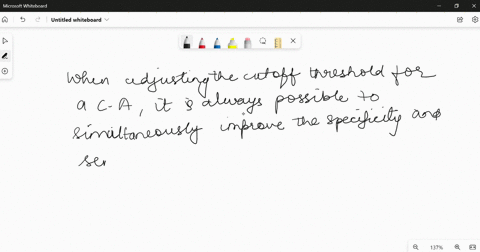 Microsoft Whiteboard
Untitled whiteboard
When adjusting the cutoff threshold for
a C-A, it is always possible to
simultaneously improve the specificity and
se
137%